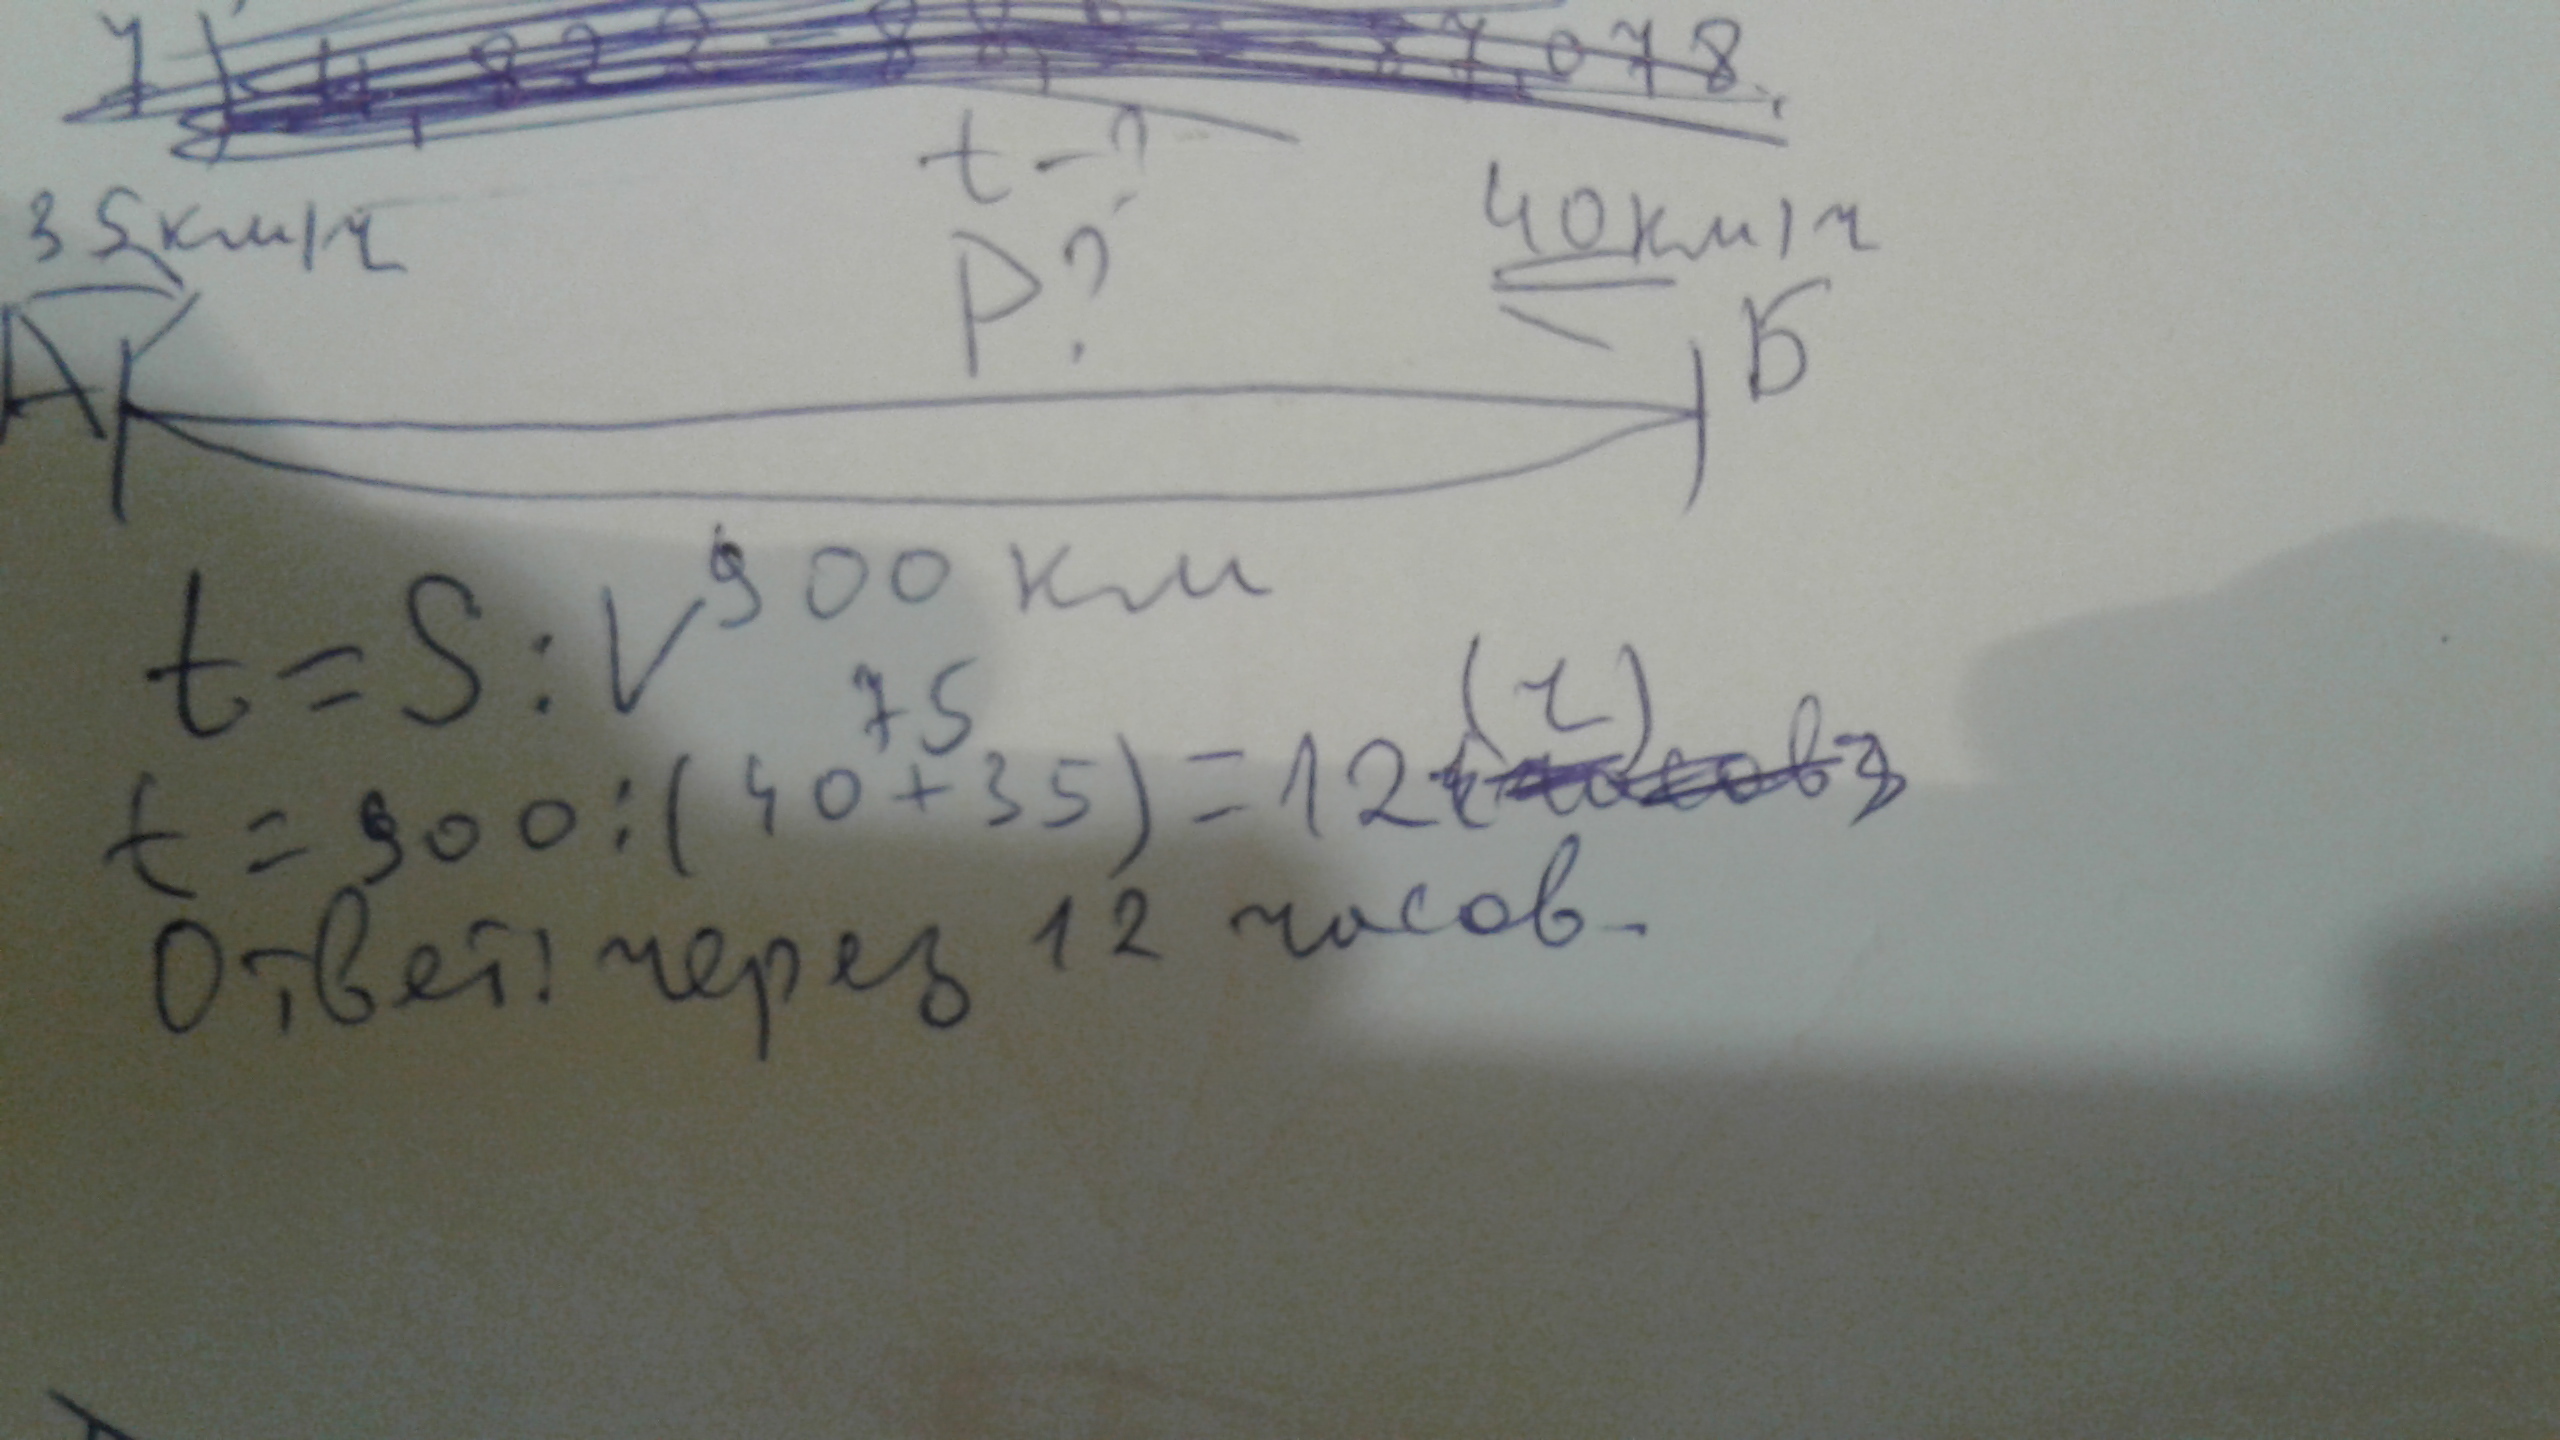 t-?
35км/ч
40км/ч
P?
А
Б
900 км
t=S:V
75
(ч)
t=900:(40+35)=12
Ответ: через 12 часов.